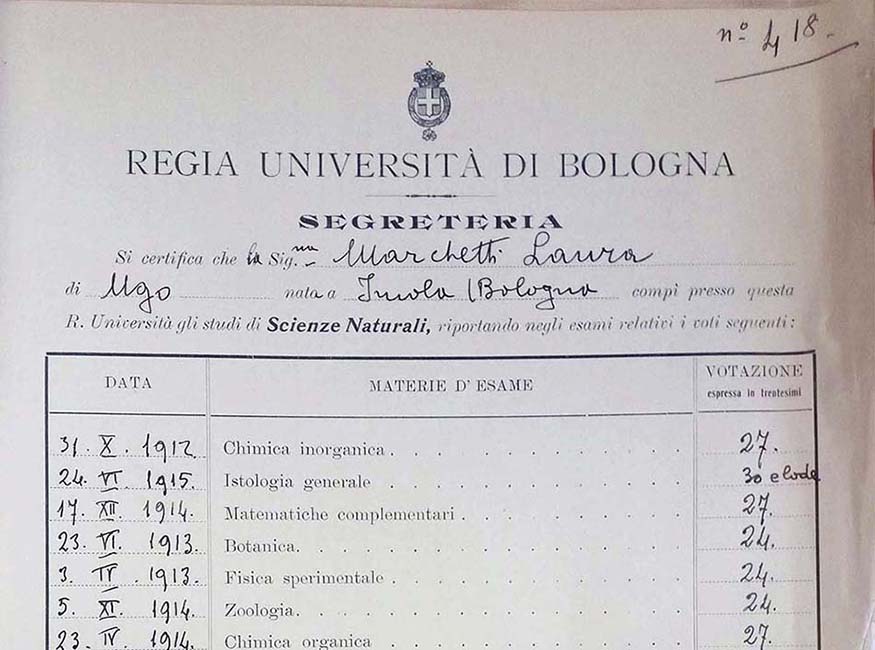 nº 418.
REGIA UNIVERSITÀ DI BOLOGNA
SEGRETERIA
Si certifica che la Sig.na Marchetti Laura
di Ugo nata a Imola (Bologna compì presso questa
R. Università gli studi di Scienze Naturali, riportando negli esami relativi i voti seguenti:
DATA MATERIE D' ESAME VOTAZIONE
espressa in trentesimi
31. X. 1912 Chimica inorganica 27.
24. VI 1915. Istologia generale 30 e lode
17. XII. 1914. Matematiche complementari 27.
23. VI. 1913. Botanica 24.
3. IV. 1913. Fisica sperimentale 24.
5. XI. 1914. Zoologia 24.
23. IV. 1914. Chimica organica 27.